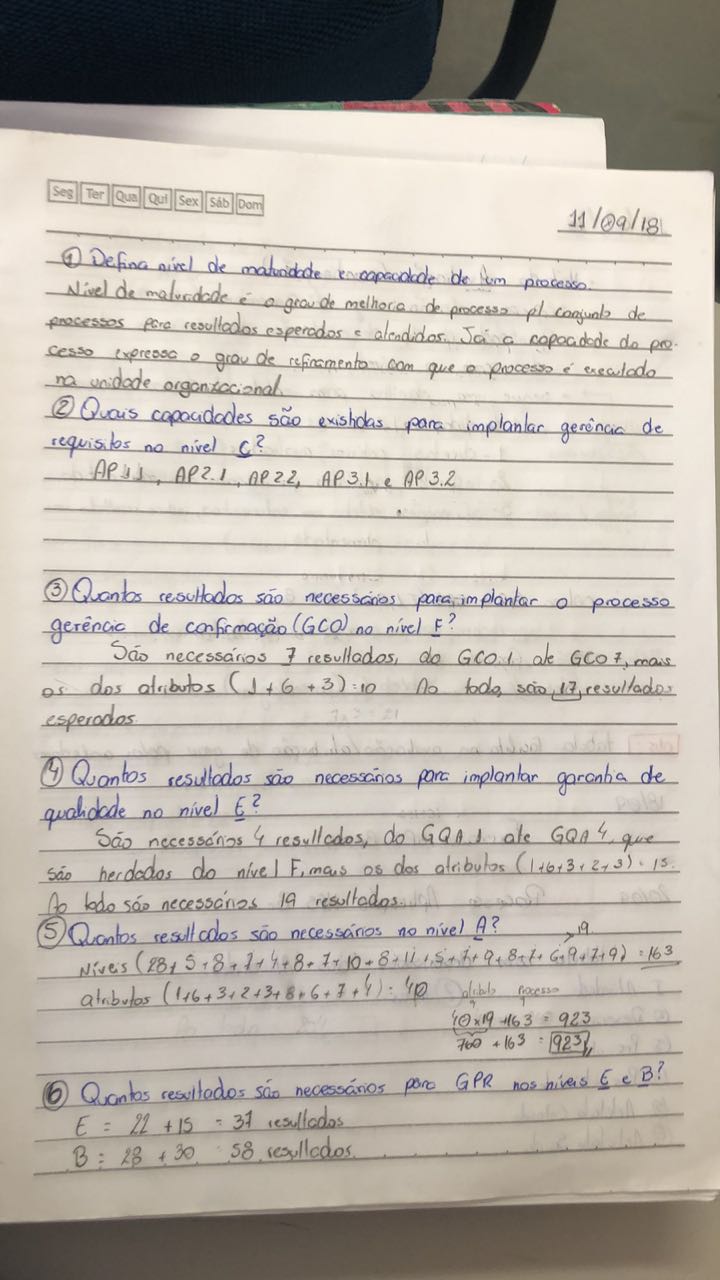 Seg Ter Qua Qui Sex Sáb Dom
11/09/18
① Defina nível de maturidade e capacidade de um processo.
Nível de maturidade é o grau de melhoria de processo p/ conjunto de
processos para resultados esperados e atendidos. Já a capacidade do pro-
cesso expressa o grau de refinamento com que o processo é executado
na unidade organizacional.
② Quais capacidades são existidas para implantar gerência de
requisitos no nível C?
AP 1.1, AP 2.1, AP 2.2, AP 3.1 e AP 3.2
③ Quantos resultados são necessários para implantar o processo
gerência de confirmação (GCO) no nível F?
São necessários 7 resultados, do GCO 1 até GCO 7, mais
os dos atributos (1+6+3)=10 Ao todo, são 17 resultados
esperados.
④ Quantos resultados são necessários para implantar garantia de
qualidade no nível E?
São necessários 4 resultados, do GQA 1 até GQA 4, que
são herdados do nível F, mais os dos atributos (1+6+3+2+3)=15.
Ao todo são necessários 19 resultados.
⑤ Quantos resultados são necessários no nível A?
19
Níveis (28+5+8+7+4+8+7+10+8+11+5+7+9+8+7+6+9+7+9) = 163
atributos (1+6+3+2+3+8+6+7+4) = 40
atributo processo
40x19+163 = 923
760 + 163 = 923
⑥ Quantos resultados são necessários para GPR nos níveis E e B?
E = 22 + 15 = 37 resultados
B = 28 + 30 58 resultados.